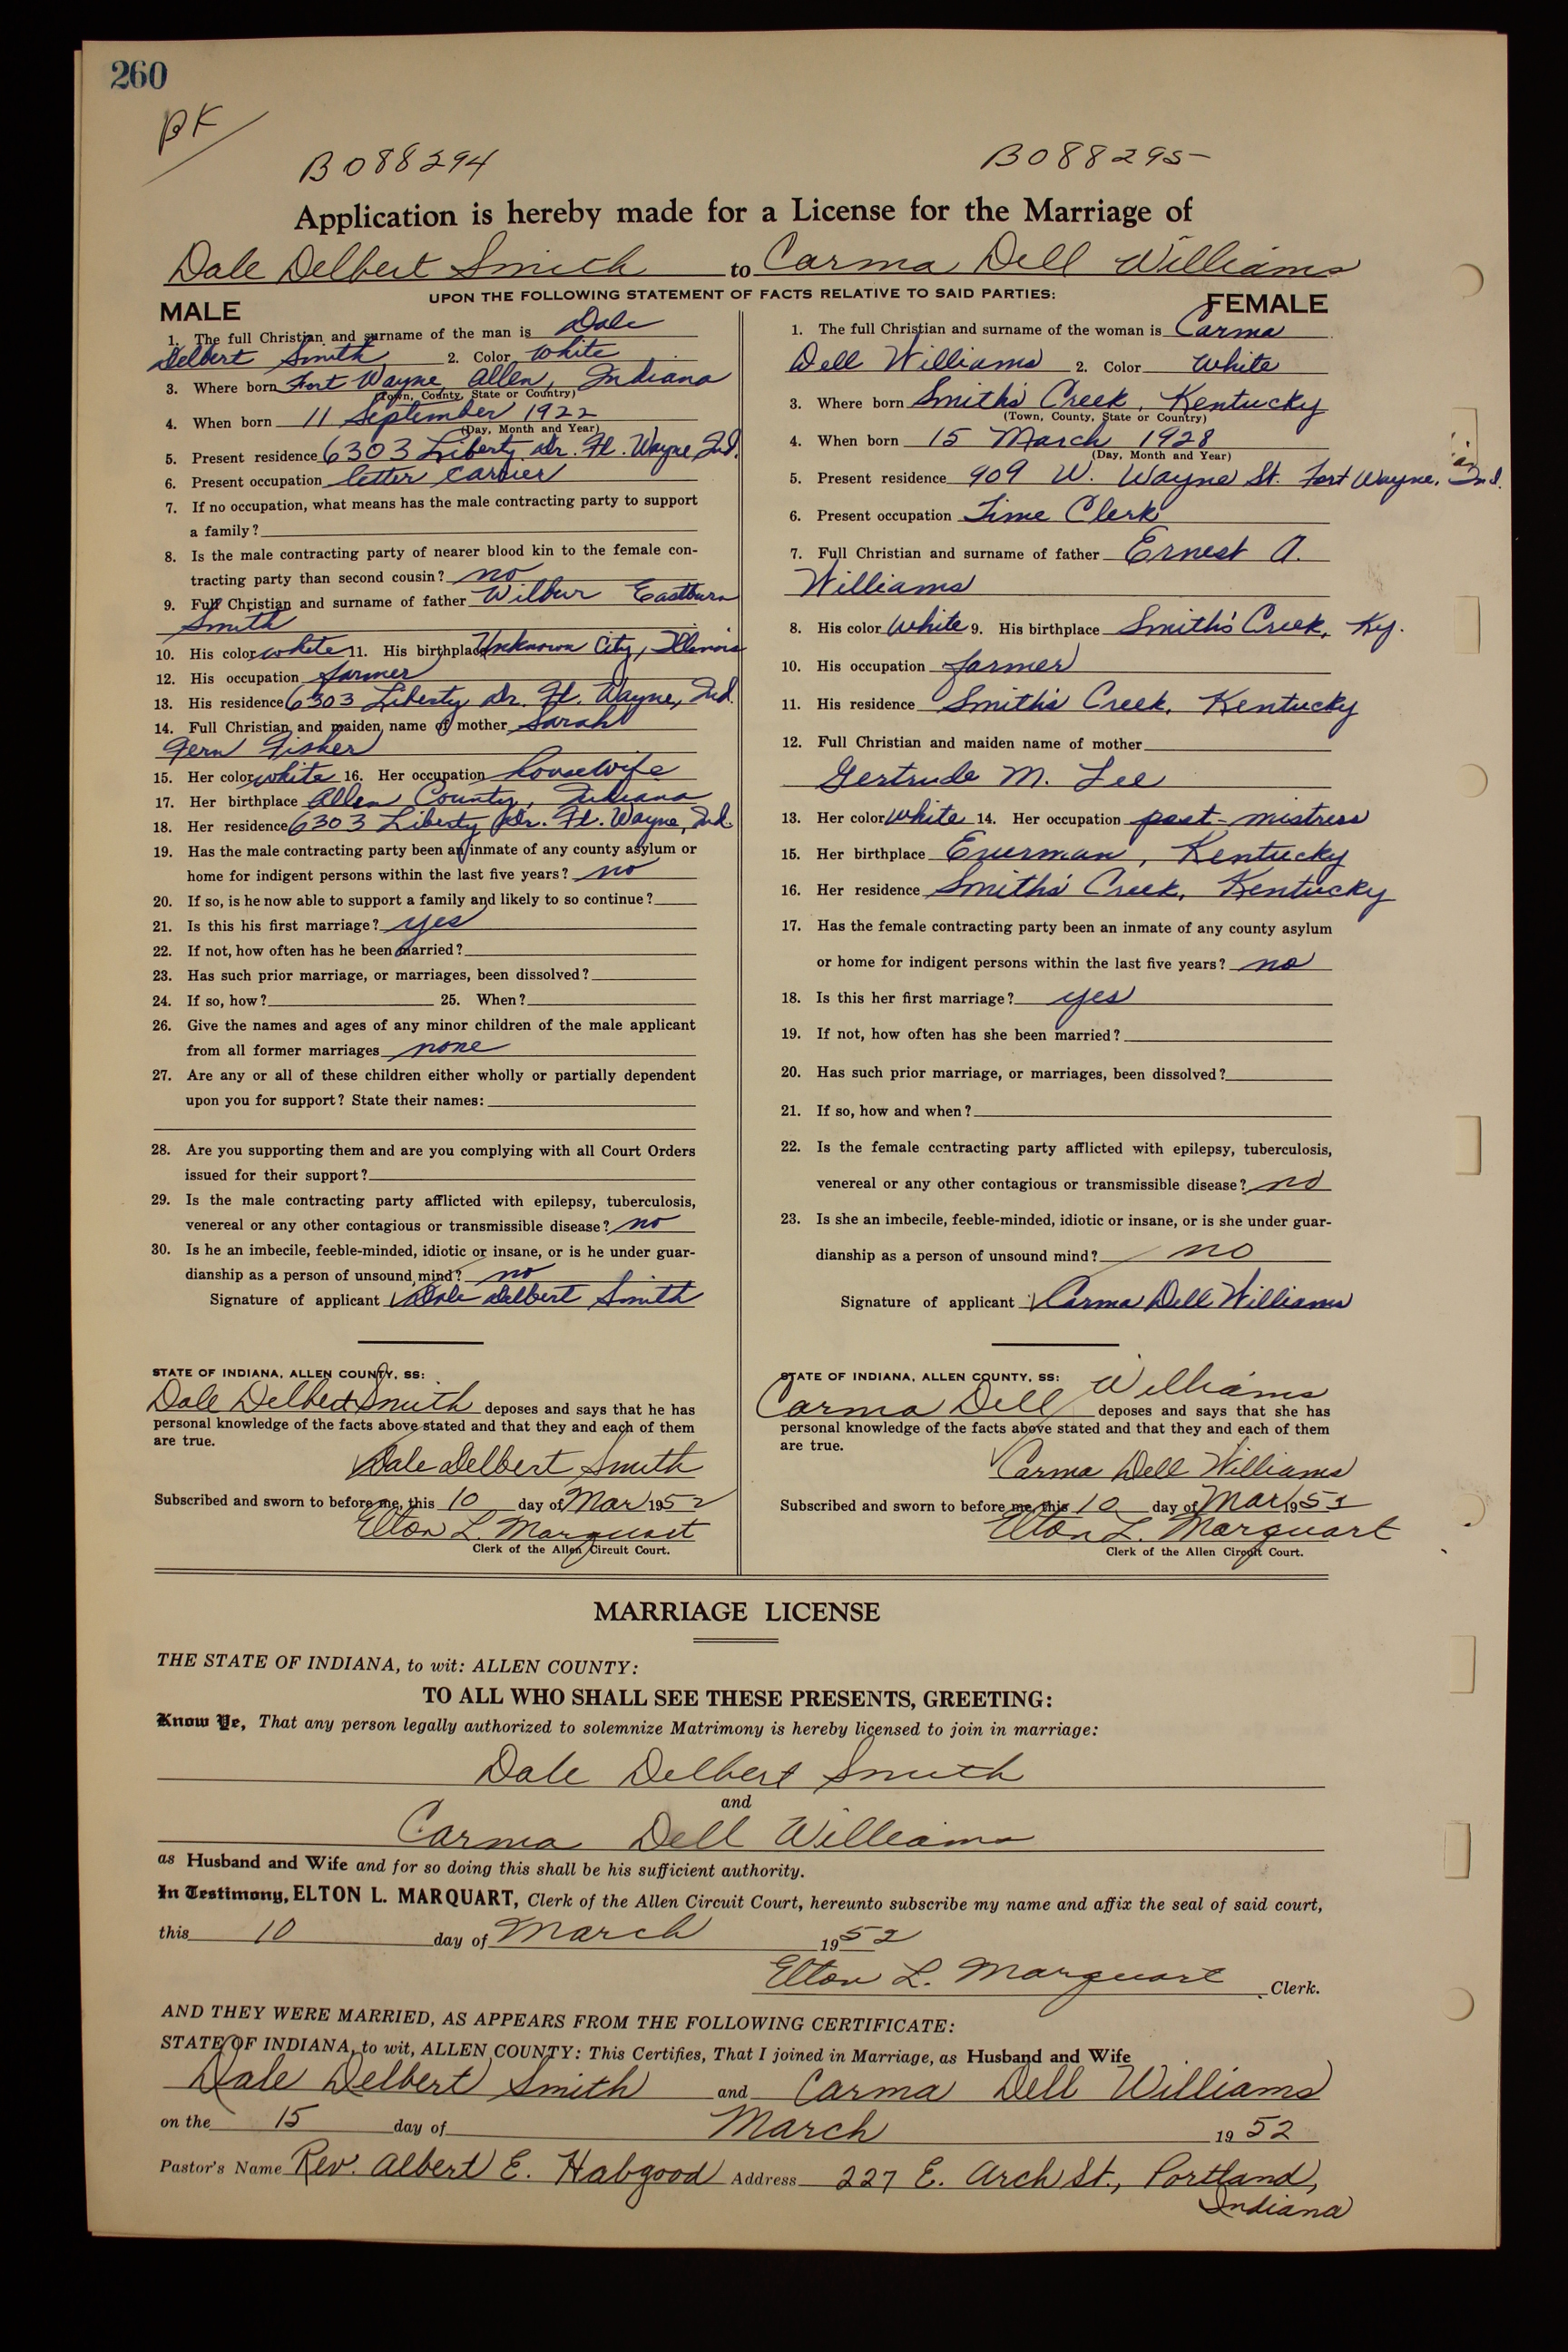 260
BK
B088294
B088295
Application is hereby made for a License for the Marriage of
Dale Delbert Smith to Carma Dell Williams
UPON THE FOLLOWING STATEMENT OF FACTS RELATIVE TO SAID PARTIES:
MALE
1. The full Christian and surname of the man is Dale
Delbert Smith 2. Color White
3. Where born Fort Wayne, Allen, Indiana
(Town, County, State or Country)
4. When born 11 September 1922
(Day, Month and Year)
5. Present residence 6303 Liberty Dr. Ft. Wayne, Ind.
6. Present occupation letter carrier
7. If no occupation, what means has the male contracting party to support
a family?
8. Is the male contracting party of nearer blood kin to the female con-
tracting party than second cousin? no
9. Full Christian and surname of father Wilbur Eastburn
Smith
10. His color white 11. His birthplace Unknown City, Illinois
12. His occupation farmer
13. His residence 6303 Liberty Dr. Ft. Wayne, Ind.
14. Full Christian and maiden name of mother Sarah
Fern Fisher
15. Her color white 16. Her occupation housewife
17. Her birthplace Allen County, Indiana
18. Her residence 6303 Liberty Dr. Ft. Wayne, Ind.
19. Has the male contracting party been an inmate of any county asylum or
home for indigent persons within the last five years? no
20. If so, is he now able to support a family and likely to so continue?
21. Is this his first marriage? yes
22. If not, how often has he been married?
23. Has such prior marriage, or marriages, been dissolved?
24. If so, how? 25. When?
26. Give the names and ages of any minor children of the male applicant
from all former marriages none
27. Are any or all of these children either wholly or partially dependent
upon you for support? State their names:
28. Are you supporting them and are you complying with all Court Orders
issued for their support?
29. Is the male contracting party afflicted with epilepsy, tuberculosis,
venereal or any other contagious or transmissible disease? no
30. Is he an imbecile, feeble-minded, idiotic or insane, or is he under guar-
dianship as a person of unsound mind? no
Signature of applicant Dale Delbert Smith
STATE OF INDIANA, ALLEN COUNTY, SS:
Dale Delbert Smith deposes and says that he has
personal knowledge of the facts above stated and that they and each of them
are true.
Dale Delbert Smith
Subscribed and sworn to before me, this 10 day of Mar 1952
Elton L. Marquart
Clerk of the Allen Circuit Court.
FEMALE
1. The full Christian and surname of the woman is Carma
Dell Williams 2. Color White
3. Where born Smith's Creek, Kentucky
(Town, County, State or Country)
4. When born 15 March 1928
(Day, Month and Year)
5. Present residence 909 W. Wayne St. Fort Wayne, Ind.
6. Present occupation Time Clerk
7. Full Christian and surname of father Ernest A.
Williams
8. His color White 9. His birthplace Smith's Creek, Ky.
10. His occupation farmer
11. His residence Smith's Creek, Kentucky
12. Full Christian and maiden name of mother
Gertrude M. Lee
13. Her color White 14. Her occupation post-mistress
15. Her birthplace Everman, Kentucky
16. Her residence Smith's Creek, Kentucky
17. Has the female contracting party been an inmate of any county asylum
or home for indigent persons within the last five years? no
18. Is this her first marriage? yes
19. If not, how often has she been married?
20. Has such prior marriage, or marriages, been dissolved?
21. If so, how and when?
22. Is the female contracting party afflicted with epilepsy, tuberculosis,
venereal or any other contagious or transmissible disease? no
23. Is she an imbecile, feeble-minded, idiotic or insane, or is she under guar-
dianship as a person of unsound mind? no
Signature of applicant Carma Dell Williams
STATE OF INDIANA, ALLEN COUNTY, SS:
Carma Dell Williams deposes and says that she has
personal knowledge of the facts above stated and that they and each of them
are true.
Carma Dell Williams
Subscribed and sworn to before me, this 10 day of Mar 1952
Elton L. Marquart
Clerk of the Allen Circuit Court.
MARRIAGE LICENSE
THE STATE OF INDIANA, to wit: ALLEN COUNTY:
TO ALL WHO SHALL SEE THESE PRESENTS, GREETING:
Know Ye, That any person legally authorized to solemnize Matrimony is hereby licensed to join in marriage:
Dale Delbert Smith
and
Carma Dell Williams
as Husband and Wife and for so doing this shall be his sufficient authority.
In Testimony, ELTON L. MARQUART, Clerk of the Allen Circuit Court, hereunto subscribe my name and affix the seal of said court,
this 10 day of March 1952
Elton L. Marquart Clerk.
AND THEY WERE MARRIED, AS APPEARS FROM THE FOLLOWING CERTIFICATE:
STATE OF INDIANA, to wit, ALLEN COUNTY: This Certifies, That I joined in Marriage, as Husband and Wife
Dale Delbert Smith and Carma Dell Williams
on the 15 day of March 1952
Pastor's Name Rev. Albert E. Habgood Address 227 E. Arch St., Portland,
Indiana